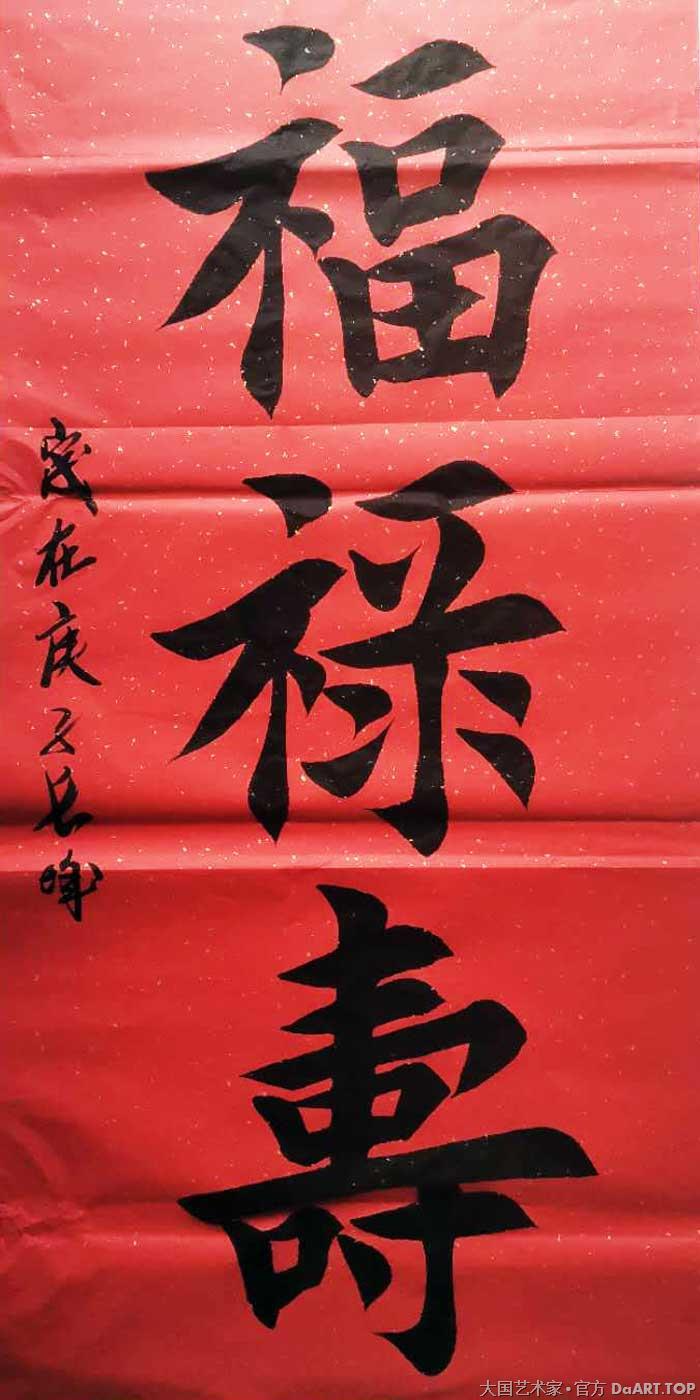 福禄壽
歲在庚子長峰
大国艺术家·官方 DaART.TOP